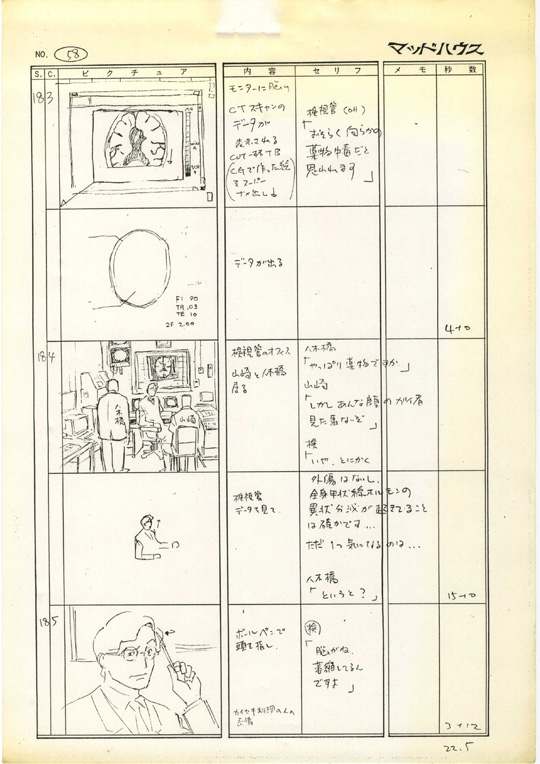 NO. 58
マッドハウス
S. C. ピクチュア 内容 セリフ メモ 秒数
183
モニターに脳の
CTスキャンの
データが
表示される
検視官 (OFF)
「おそらく何らかの
薬物中毒だと
思われます」
データが出る
TR .03
TE 10
2F 2.00
4+0
184
検視官のオフィス
山崎と八木橋
居る
八木橋
山崎
八木橋
「やっぱり薬物ですか」
山崎
「しかしあんな顔の
見た事ないぞ」
検
「いや、とにかく
検視官
データを見て、
外傷はないし、
異状分泌が起きてること
は確かです...
ただ1つ気になるのは...
八木橋
「というと?」
15+0
185
ボールペンで
頭を指し、
検
「脳がね、
萎縮してるん
ですよ」
3+12
22.5